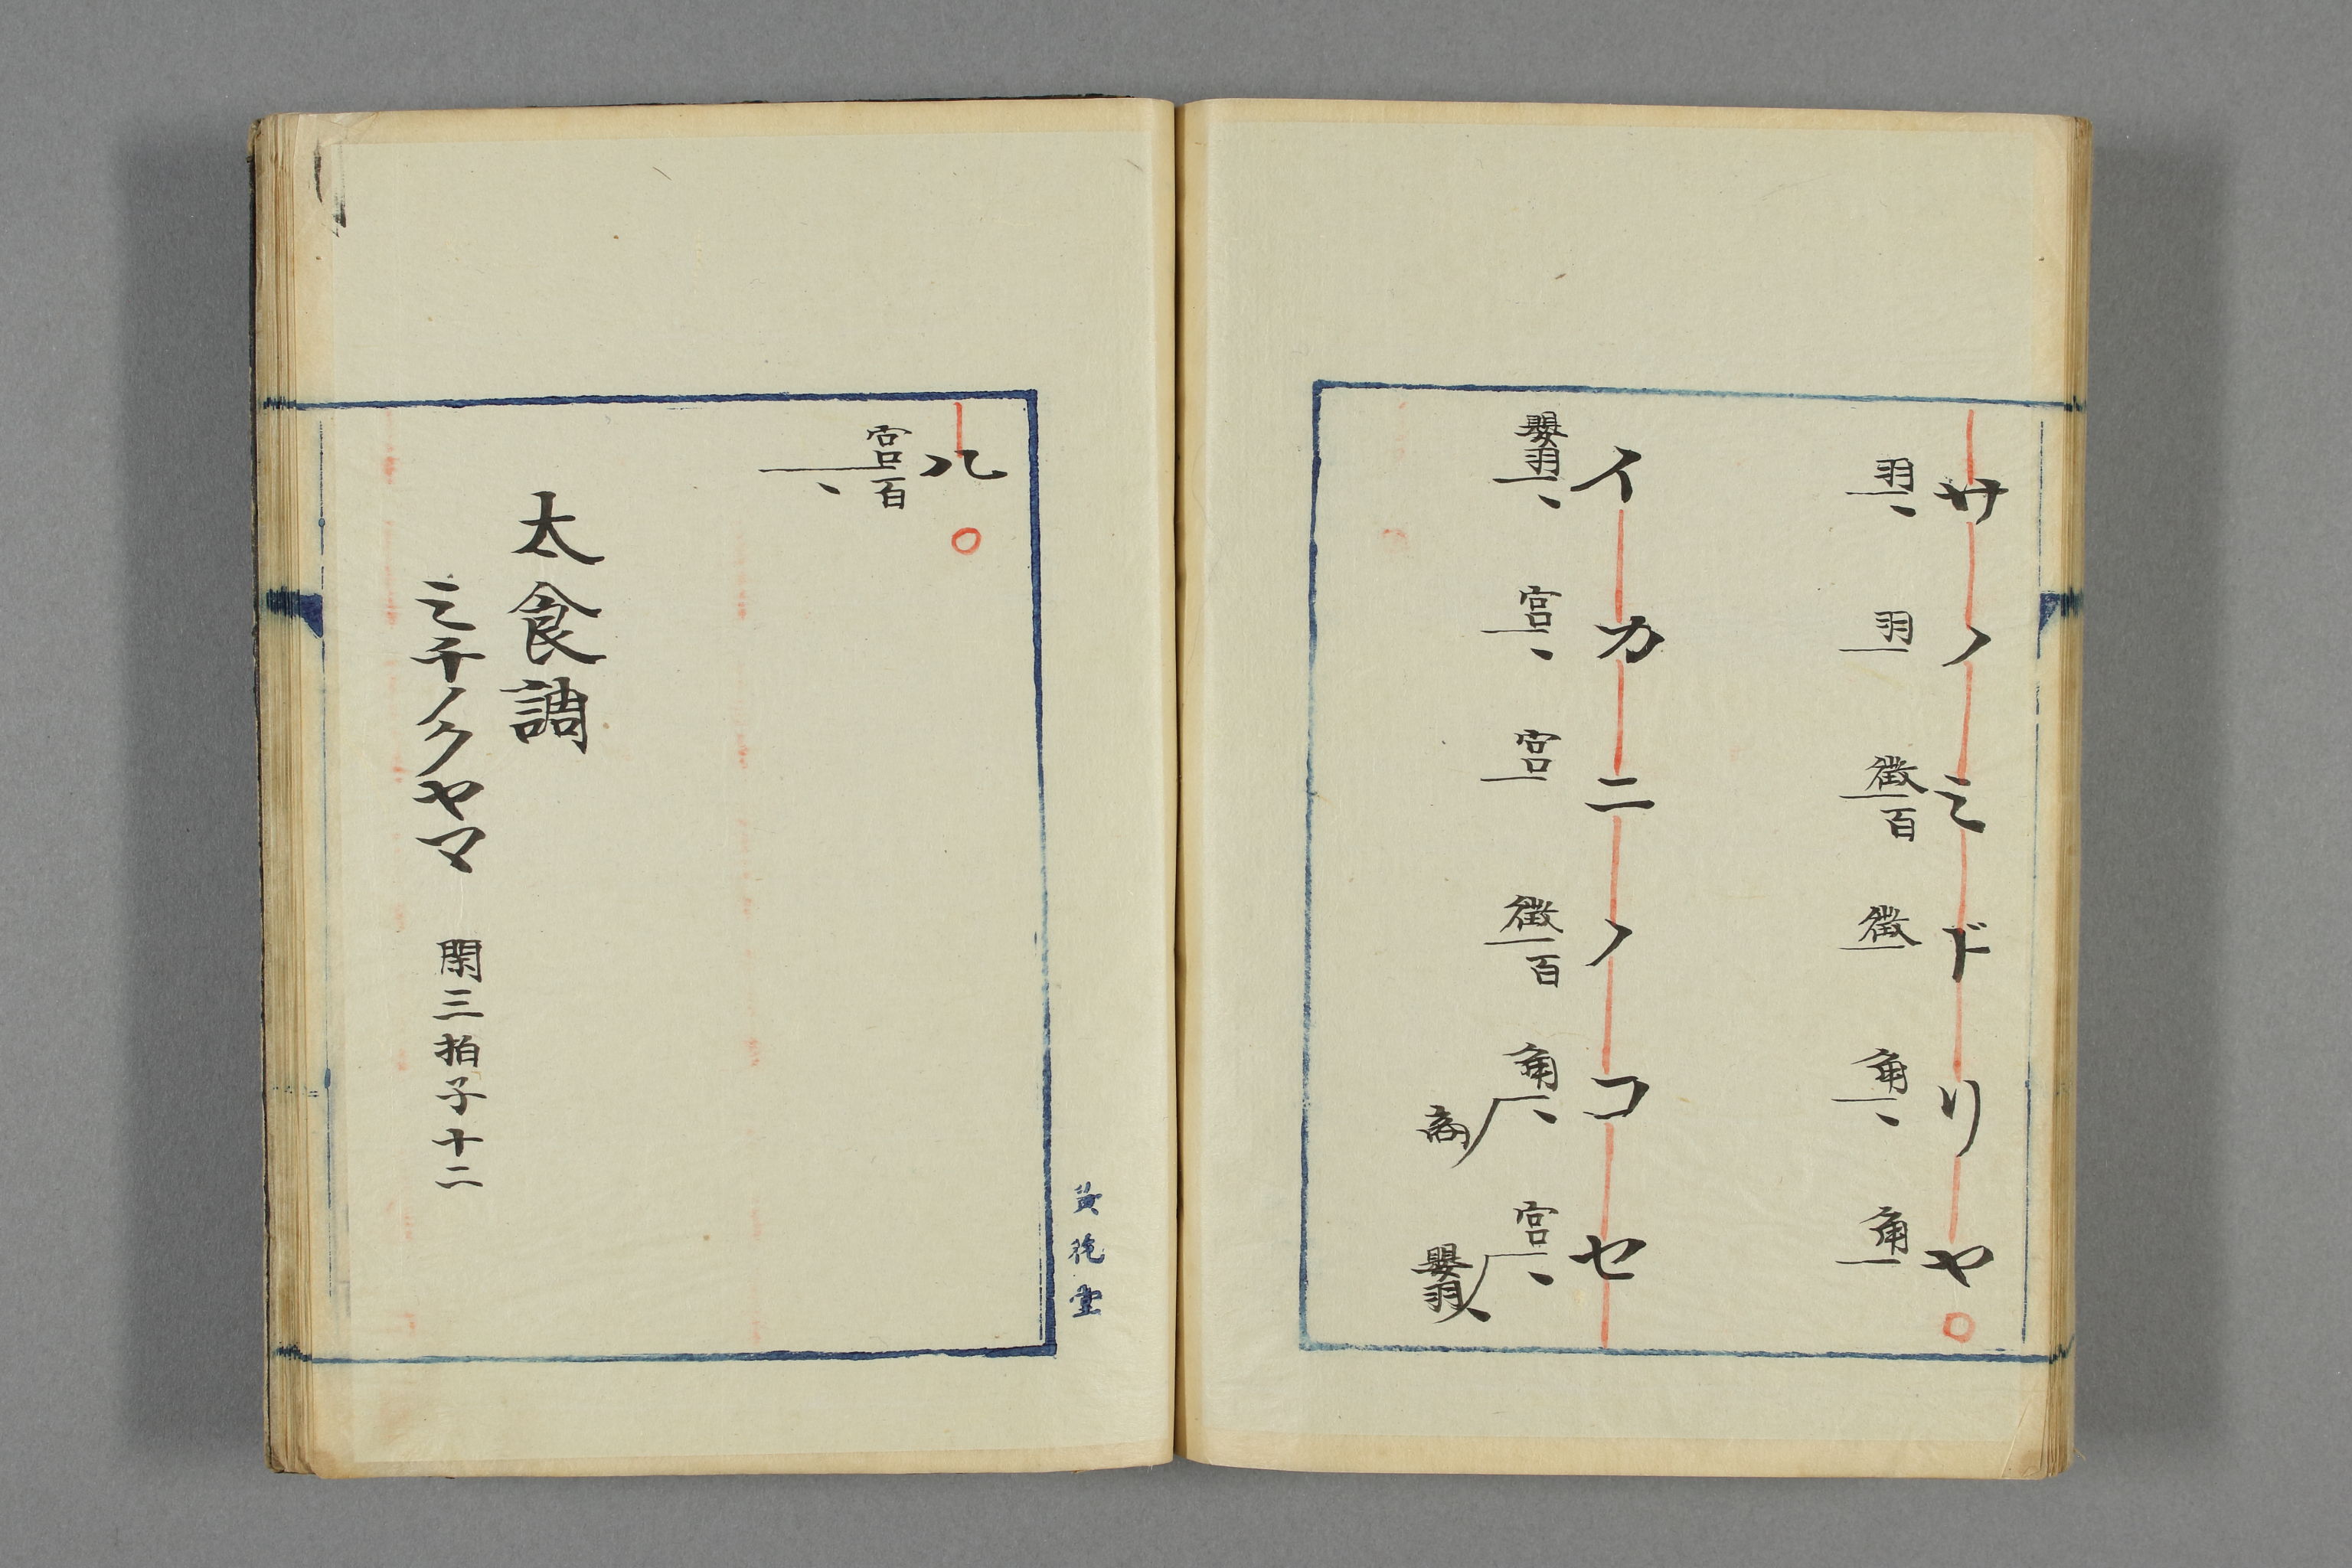 サノミドリヤ
羽 羽 徴百 徴 角 角
イカニノコセ
嬰羽 宮 宮 徴百 角 商 宮 嬰羽
ル
宮百
太食調
ミチノクヤマ 閑三拍子十二